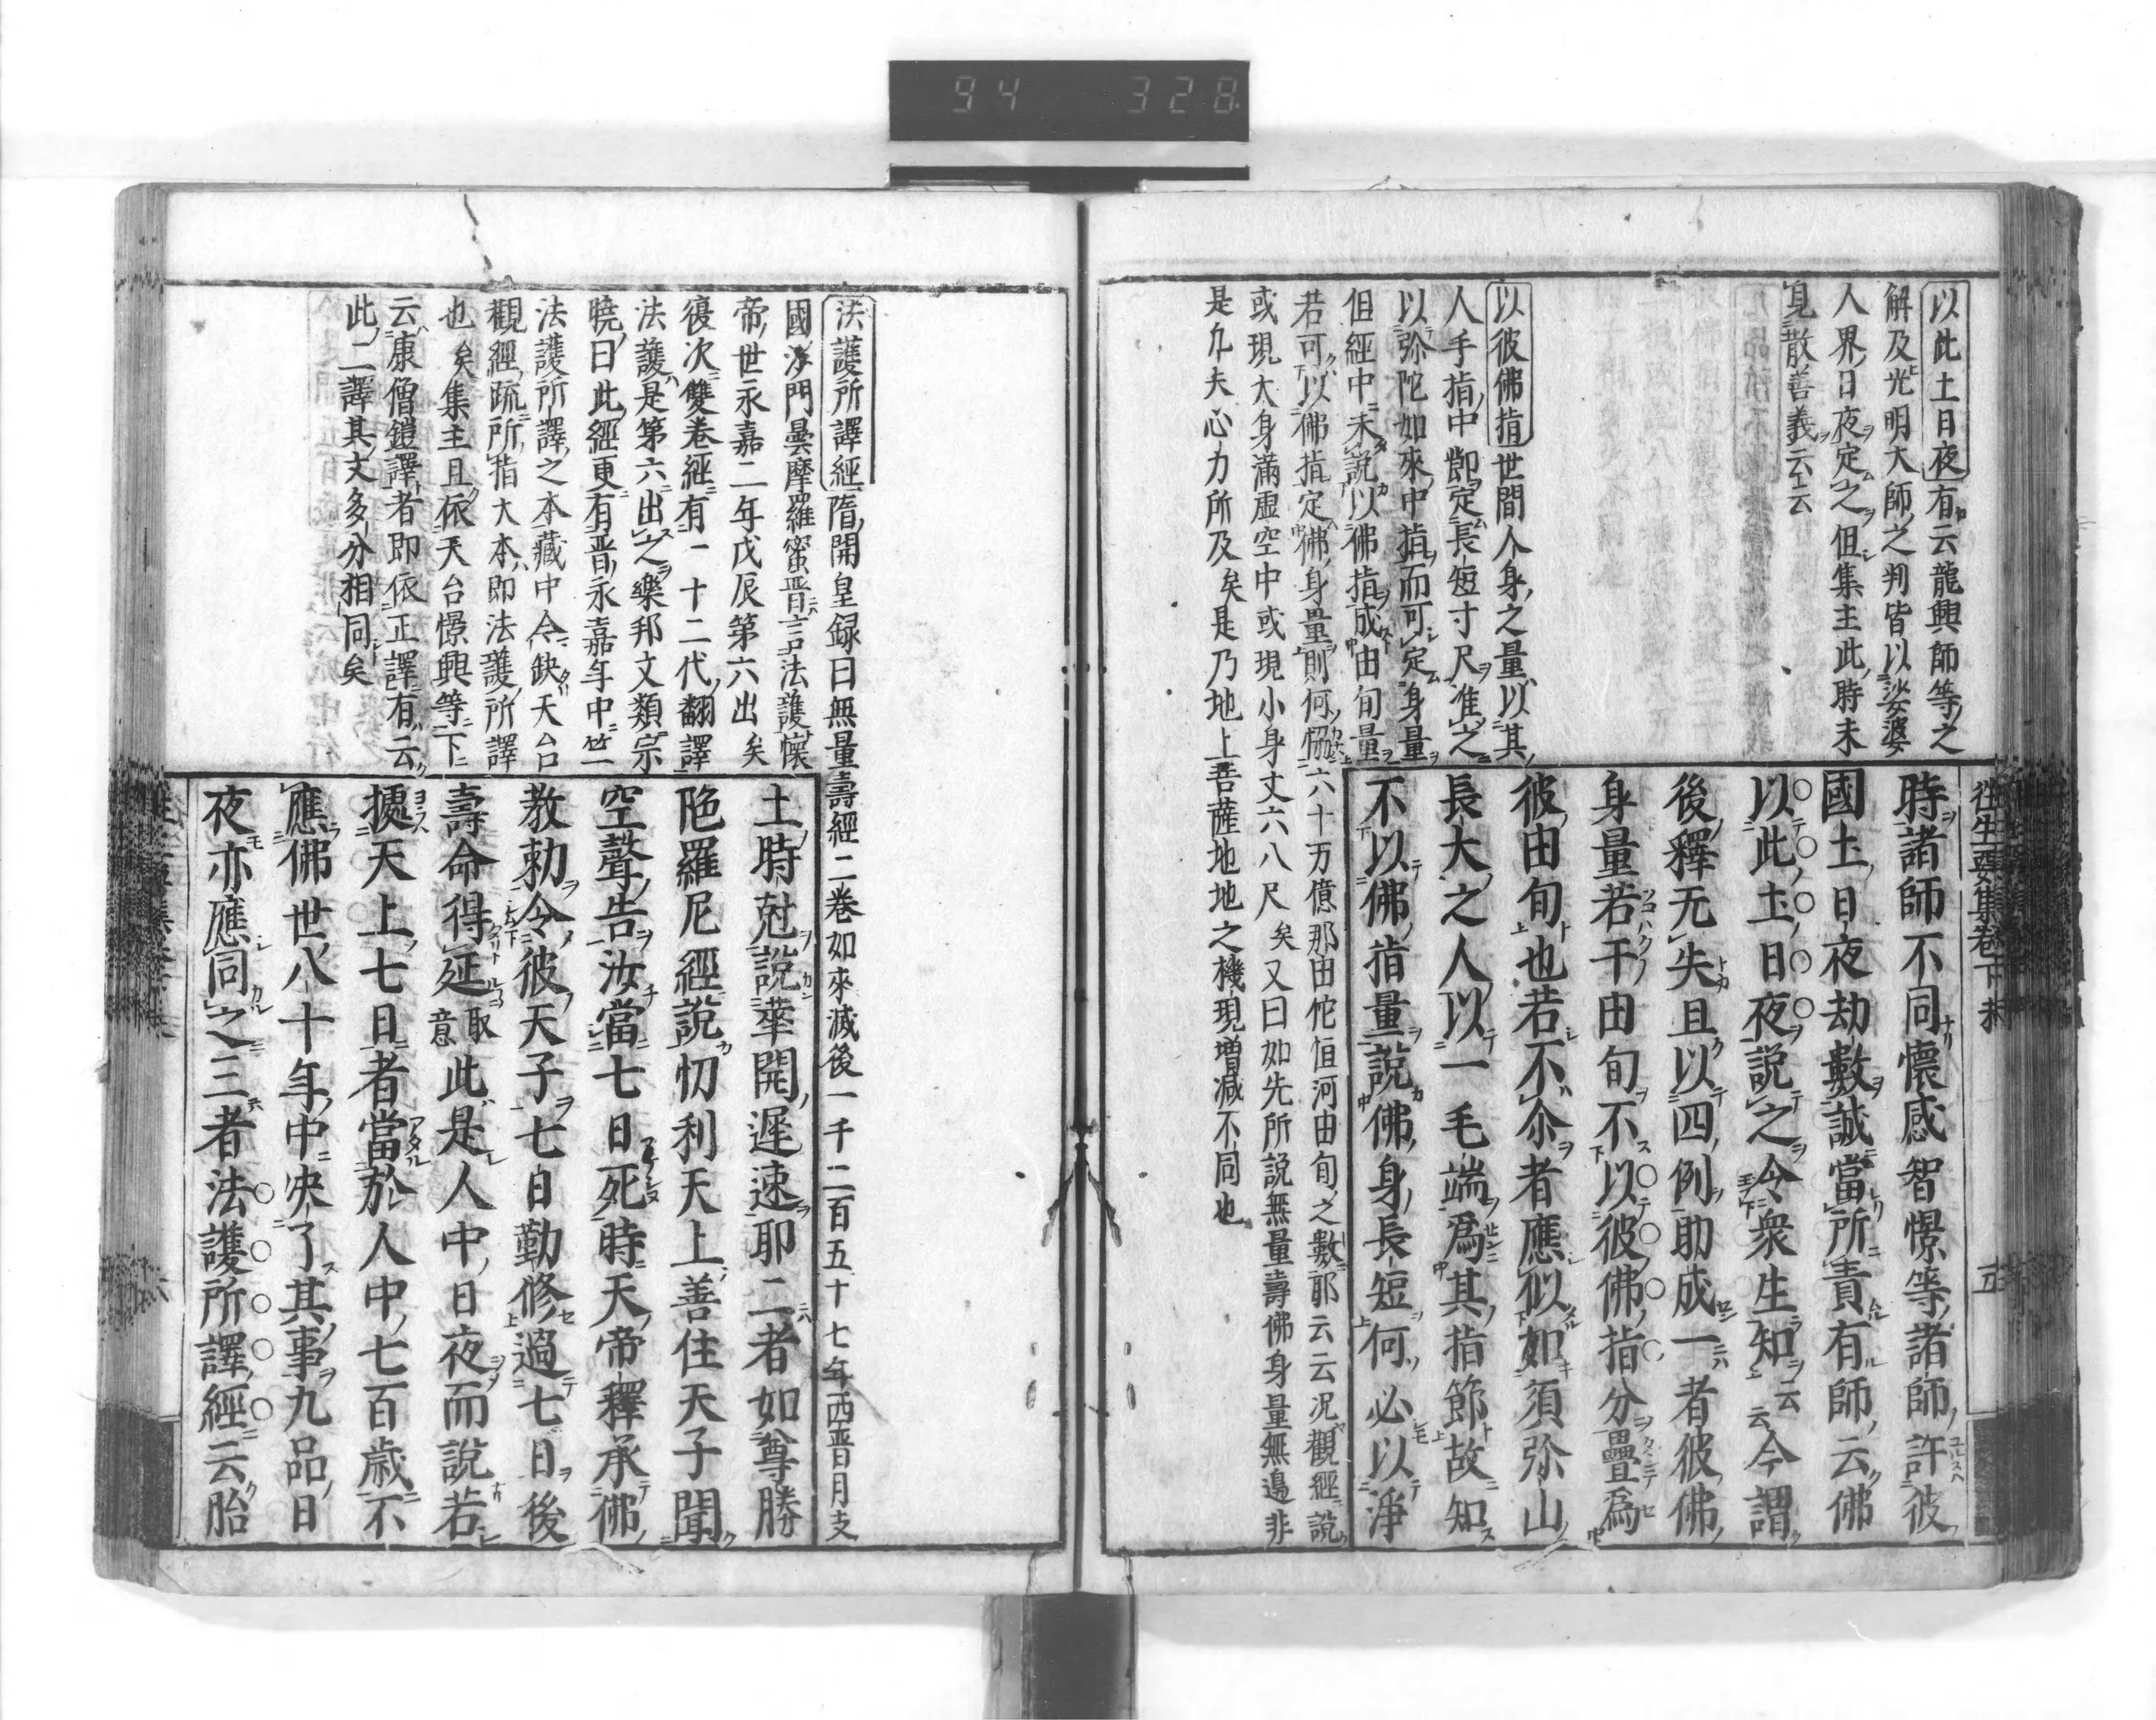 94 328
以此土日夜有云龍興師等之
解及光明大師之判皆以娑婆
人界日夜定之但集主此時未
見散善義云云
以彼佛指世間人身之量以其
人手指中卽定長短寸尺准之
以弥陀如來中指而可定身量
但經中未說以佛指成由旬量
若可以佛指定佛身量則何恊六十万億那由佗恒河由旬之數耶云云况觀經說
或現大身滿虛空中或現小身丈六八尺矣又曰如先所説無量壽佛身量無邉非
是凢夫心力所及矣是乃地上菩薩地地之機現増減不同也
往生要集卷下末 五
時諸師不同懷感智憬等諸師許彼
國土日夜劫數誠當所責有師云佛
以此土日夜說之令衆生知云云今謂
後釋无失且以四例助成一者彼佛
身量若干由旬不以彼佛指分疊爲
彼由旬也若不尒者應似如須弥山
長大之人以一毛端爲其指節故知
不以佛指量說佛身長短何必以淨
法護所譯經隋開皇録曰無量壽經二巻如來滅後一千二百五十七年西晋月支
國沙門曇摩羅蜜晋言法護懷
帝世永嘉二年戊辰第六出矣
復次雙卷經有一十二代翻譯
法護是第六出之樂邦文類宗
曉曰此經更有晋永嘉年中竺
法護所譯之本藏中今缺天台
觀經疏所指大本即法護所譯
也矣集主且依天台憬興等下
云康僧鎧譯者即依正譯有云
此二譯其文多分相同矣
土時尅說華開遲速耶二者如尊勝
陁羅尼經說忉利天上善住天子聞
空聲告汝當七日死時天帝釋承佛
教勅令彼天子七日勤修過七日後
壽命得延取意此是人中日夜而說若
攄天上七日者當於人中七百歲不
應佛世八十年中決了其事九品日
夜亦應同之三者法護所譯經云胎